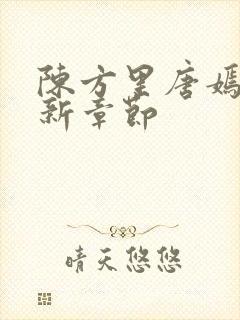 陳方里唐嫣
新章節
晴天悠悠